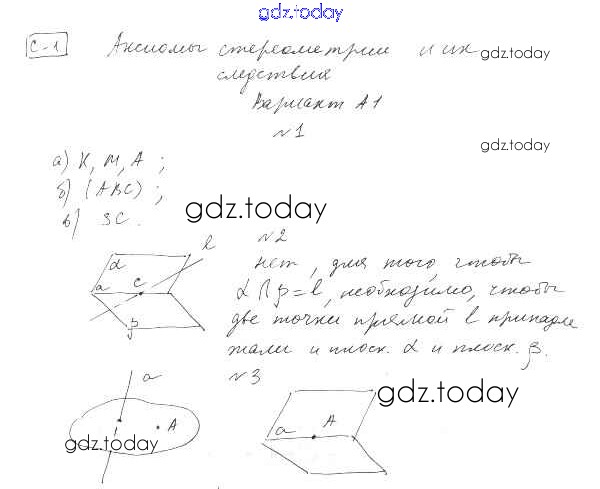 gdz.today
С-1 Аксиомы стереометрии и их gdz.today
следствия
Вариант А1
№1
gdz.today
а) K, M, A ;
б) (ABC) ;
в) SC.
gdz.today
№2
α
a
C
ℓ
β
нет, для того, чтобы
α ∩ β = ℓ, необходимо, чтобы
две точки прямой ℓ принадле
жали и плоск. α и плоск. β.
№3
a
A
gdz.today
a
A
gdz.today